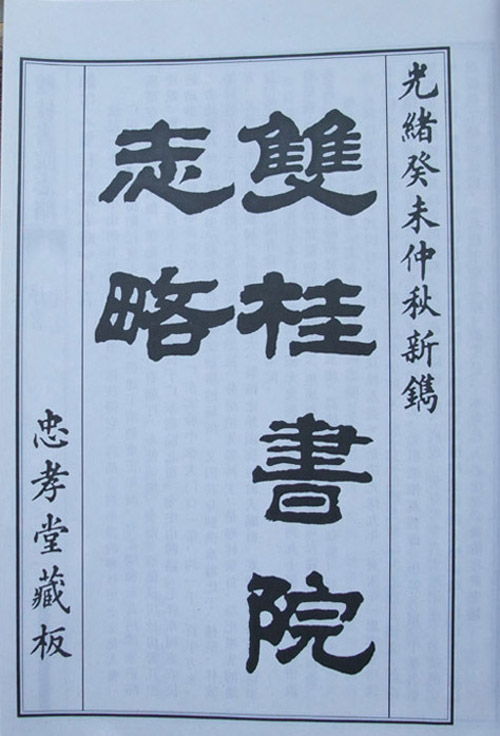 光緒癸未仲秋新鐫
雙桂書院
志略
忠孝堂藏板